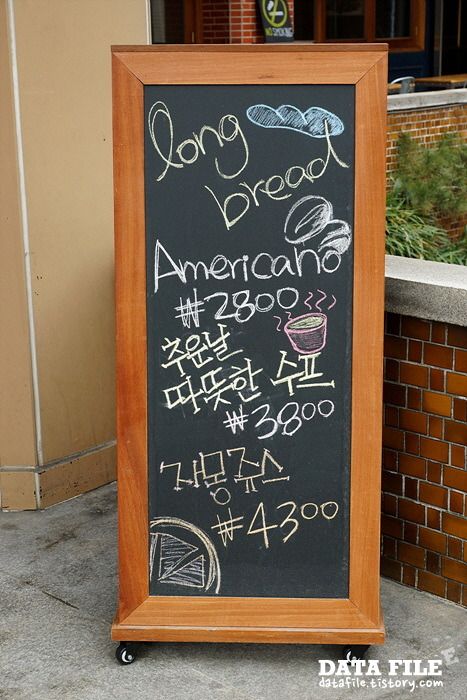 NO SMOKING
long
bread
Americano
₩2800
추운날
따뜻한 수프
₩3800
자몽쥬스
₩4300
DATA FILE
datafile.tistory.com